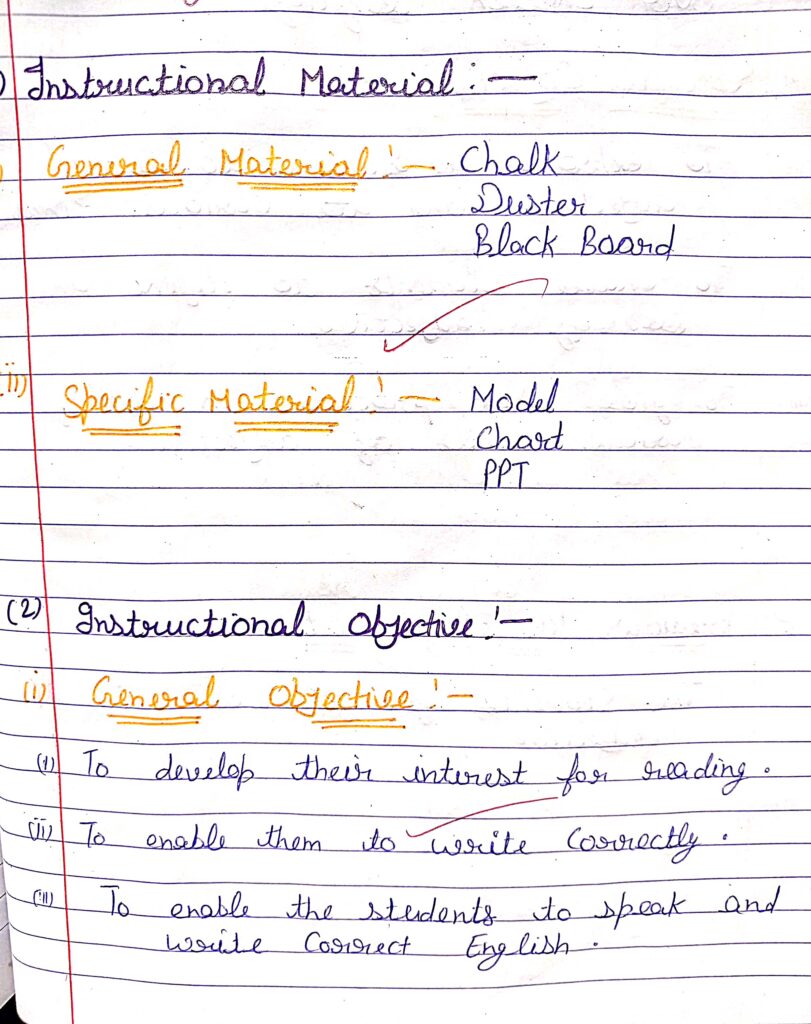 ) Instructional Material :—
) General Material :— Chalk
Duster
Black Board
ii) Specific Material :— Model
Chart
PPT
(2) Instructional Objective :—
(i) General Objective :—
(i) To develop their interest for reading.
(ii) To enable them to write Correctly.
(iii) To enable the students to speak and
write Correct English.